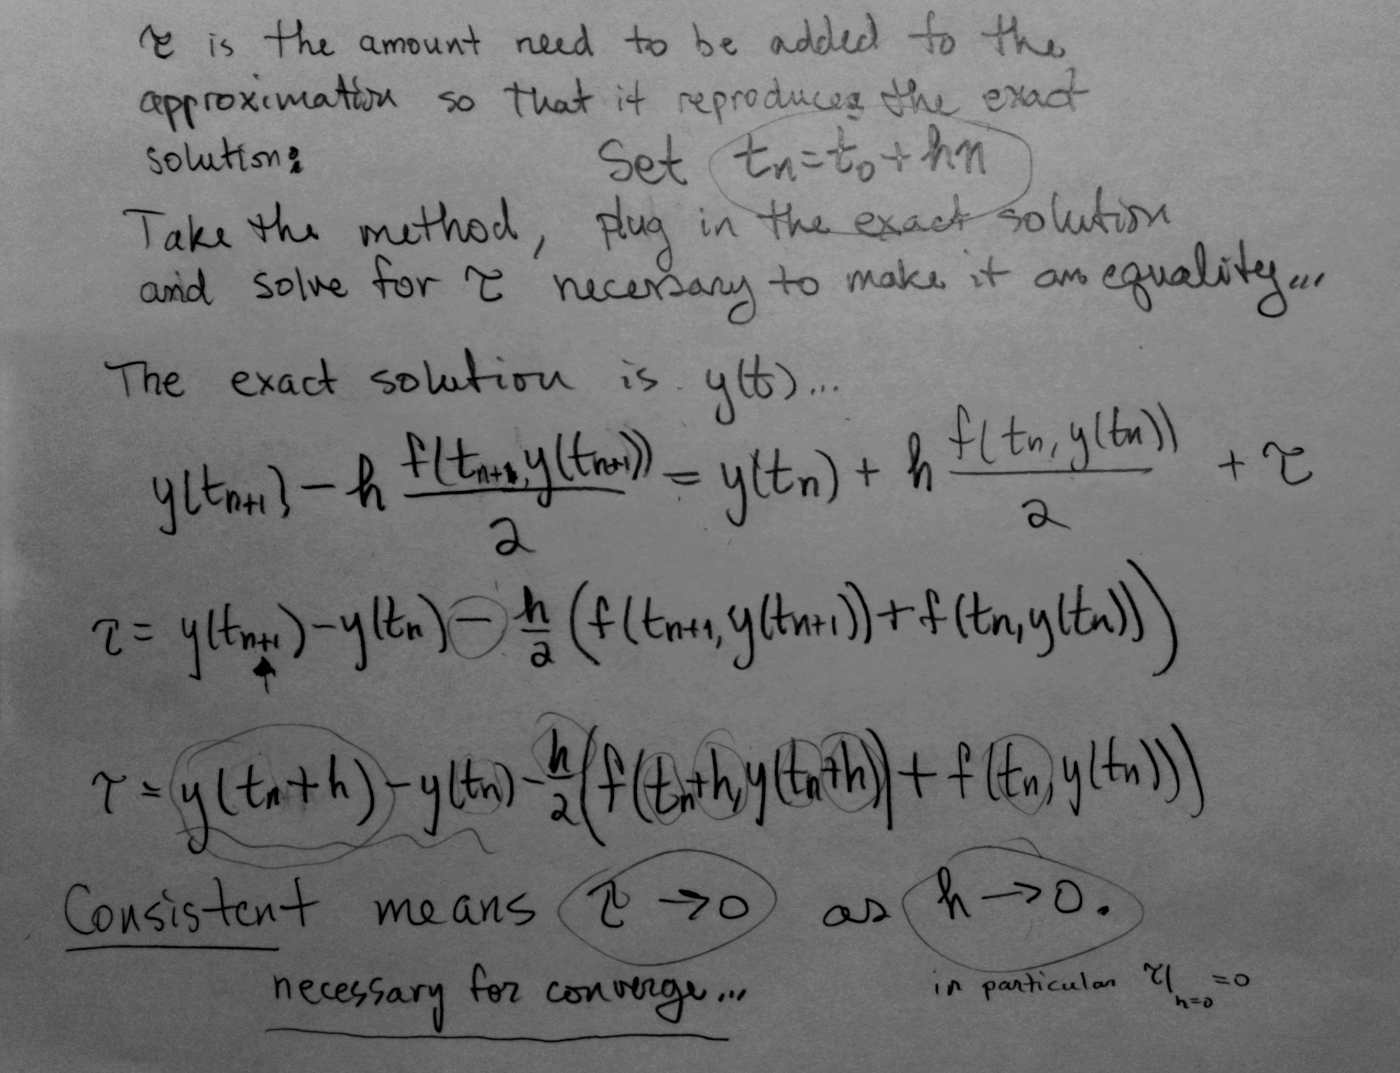 τ is the amount need to be added to the
approximation so that it reproduces the exact
solution: Set tn = t0 + hn
Take the method, plug in the exact solution
and solve for τ necessary to make it an equality...
The exact solution is y(t)...
y(tn+1) − h f(tn+1, y(tn+1))/2 = y(tn) + h f(tn, y(tn))/2 + τ
τ = y(tn+1) − y(tn) − h/2 (f(tn+1, y(tn+1)) + f(tn, y(tn)))
τ = y(tn + h) − y(tn) − h/2 (f(tn+h, y(tn+h)) + f(tn, y(tn)))
Consistent means τ → 0 as h → 0.
necessary for converge... in particular τ|h=0 = 0